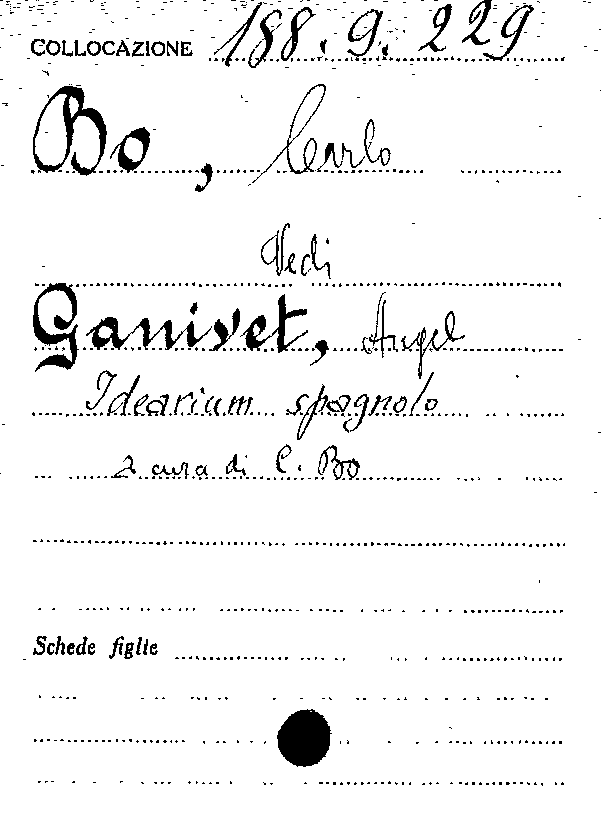 COLLOCAZIONE 188.9.229
Bo, Carlo
Vedi
Ganivet, Angel
Idearium spagnolo
a cura di C. Bo
Schede figlie